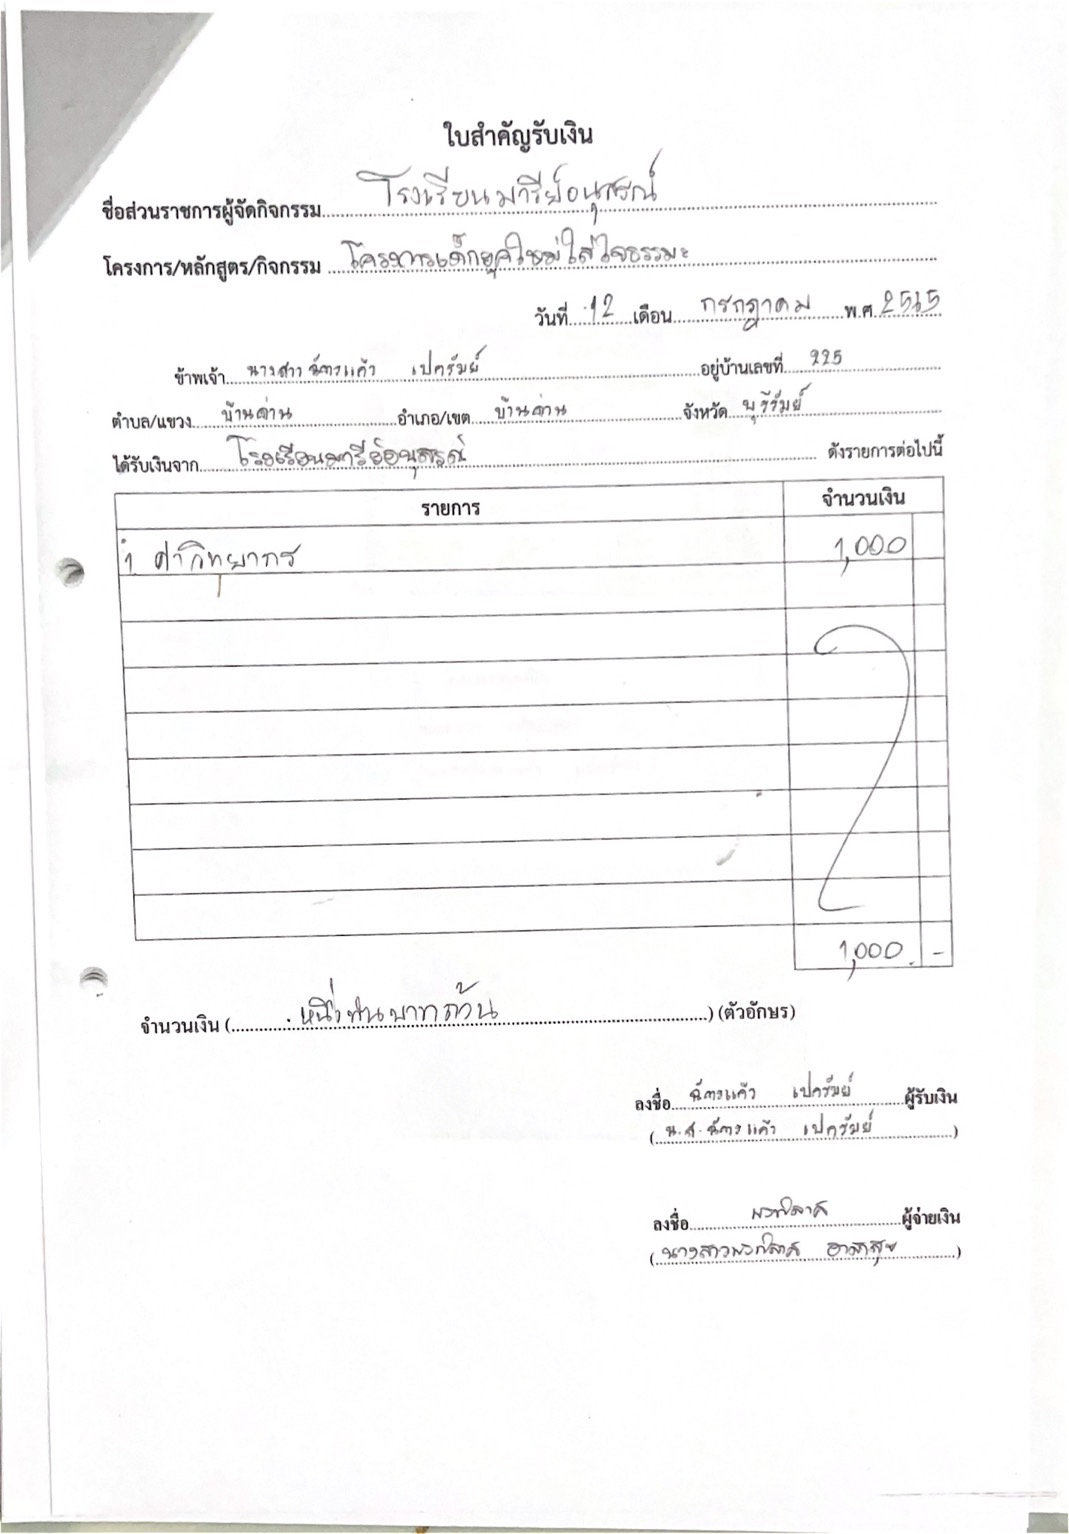 ใบสำคัญรับเงิน
ชื่อส่วนราชการผู้จัดกิจกรรม โรงเรียนมารีย์อนุสรณ์
โครงการ/หลักสูตร/กิจกรรม โครงการเด็กยุคใหม่ใส่ใจธรรมะ
วันที่ 12 เดือน กรกฎาคม พ.ศ. 2565
ข้าพเจ้า นางสาว ฉัตรแก้ว เปครัมย์ อยู่บ้านเลขที่ 225
ตำบล/แขวง บ้านด่าน อำเภอ/เขต บ้านด่าน จังหวัด บุรีรัมย์
ได้รับเงินจาก โรงเรียนมารีย์อนุสรณ์ ดังรายการต่อไปนี้
รายการ จำนวนเงิน
1. ค่าวิทยากร 1,000
1,000 . -
จำนวนเงิน ( หนึ่งพันบาทถ้วน ) (ตัวอักษร)
ลงชื่อ ฉัตรแก้ว เปครัมย์ ผู้รับเงิน
( น.ส. ฉัตรแก้ว เปครัมย์ )
ลงชื่อ ผู้จ่ายเงิน
( นางสาว )